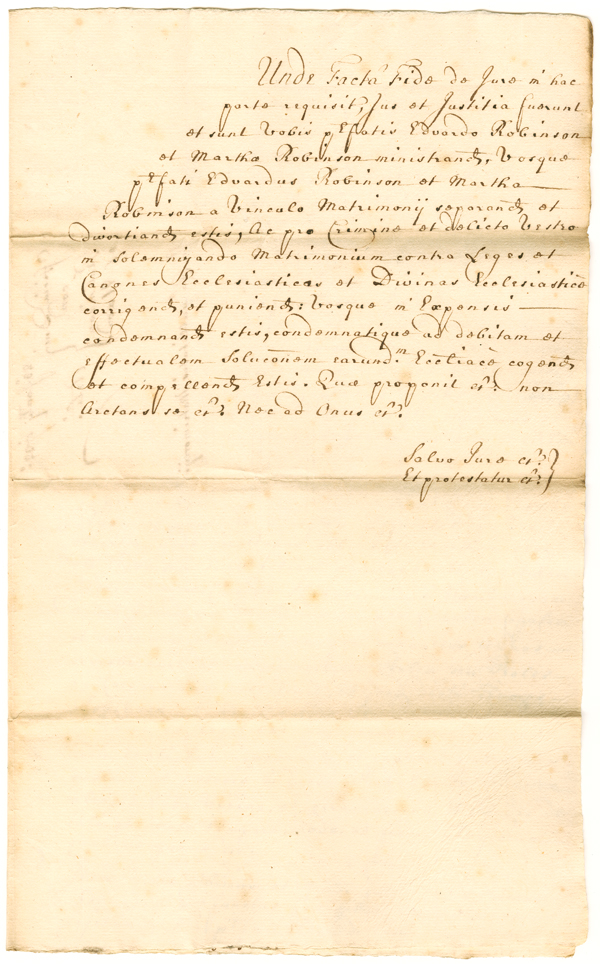 Unde Facta Fide de Jure in hac
parte requisit, Jus et Justitia fuerunt
et sunt Vobis pʳfatis Edvardo Robinson
et Martha Robinson ministrand, Vosque
pʳfati Edvardus Robinson et Martha
Robinson a Vinculo Matrimonij separand et
divortiand estis, Ac pro Crimine et delicto Vestro
in Solemnizando Matrimonium contra Leges et
Canones Ecclesiasticas et Divinas Ecclesiasticè
corrigend, et puniend: Vosque in Expensis
condemnand estis, condemnatique ad debitam et
effectualem Soluc̃onem earundᵐ. Eccl̃iacè cogend
et compellend Estis. Quæ proponit etᵃ. non
Arctans se etᵃ. Nec ad Onus etᵃ.
Salvo Jure etᵃ. }
Et protestatur etᵃ. }